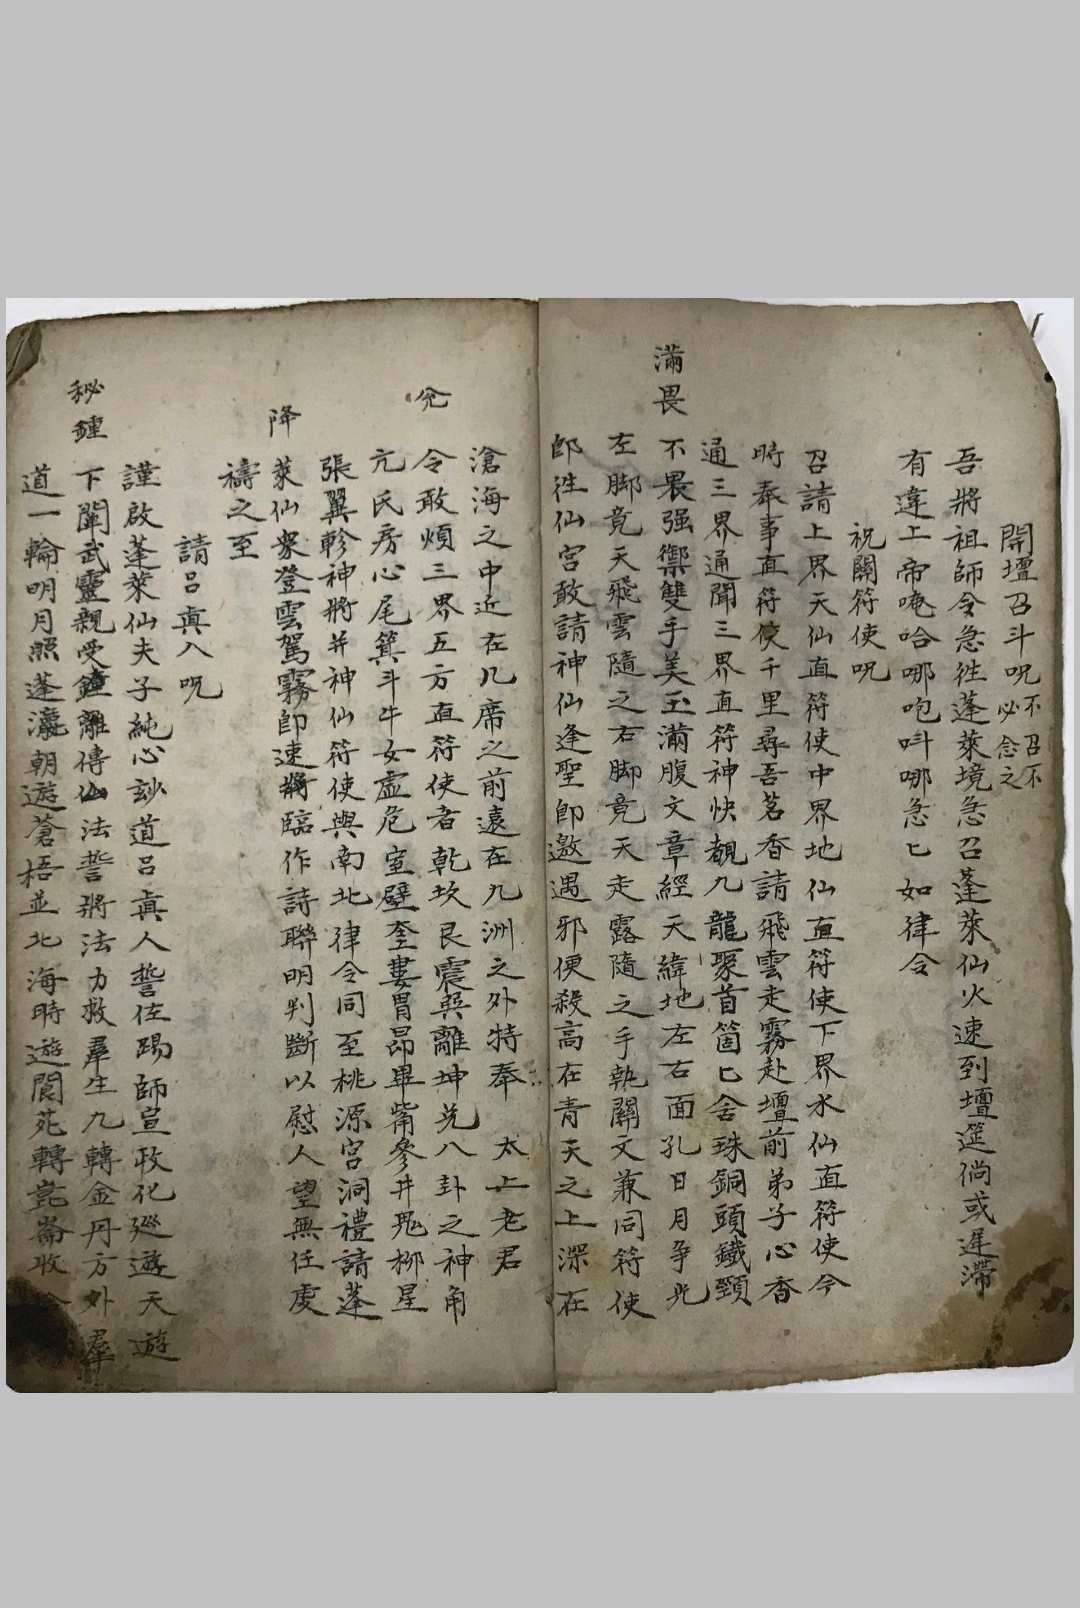 開壇召斗呪不召不必念之
吾將祖師令急徃蓬萊境急召蓬萊仙火速到壇筵倘或遲滯
有違上帝唵哈哪咆吽哪急匕如律令
祝關符使呪
召請上界天仙直符使中界地仙直符使下界水仙直符使今
時奉事直符使千里尋吾茗香請飛雲走霧赴壇前弟子心香
通三界通聞三界直符神快覩九龍聚首箇匕舍珠銅頭鐵頸
滿畏
不畏强禦雙手美玉滿腹文章經天緯地左右面孔日月爭光
左脚竟天飛雲隨之右脚竟天走露隨之手執關文兼同符使
卽徃仙宮敢請神仙逢聖卽邀遇邪便殺高在青天之上深在
滄海之中近在几席之前遠在九洲之外特奉 太上老君
兊
令敢煩三界五方直符使者乾坎艮震巽離坤兑八卦之神角
亢氐房心尾箕斗牛女虛危室壁奎婁胃昂畢觜參井鬼柳星
張翼軫神將并神仙符使與南北律令同至桃源宮洞禮請蓬
降
萊仙衆登雲駕霧卽速將臨作詩聯明判斷以慰人望無任虔
禱之至
請呂眞人呪
謹啟蓬萊仙夫子純心玅道呂眞人誓佐踢師宣敎化廵遊天遊
秘鍾
下闡武靈親受鍾離傳仙法誓將法力救羣生九轉金丹方外羣
道一輪明月照蓬瀛朝遊蒼梧並北海時遊閬苑轉崑崙收